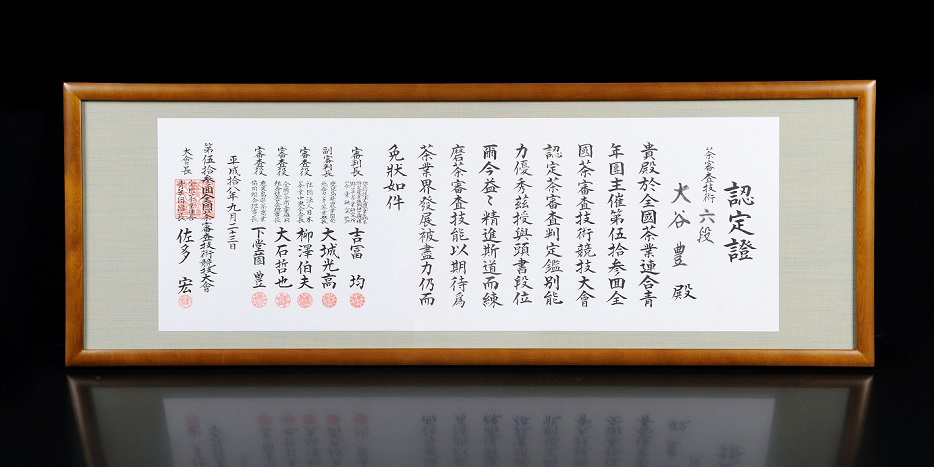 認定證
茶審査技術 六段
大谷 豊 殿
貴殿於全國茶業連合青
年團主催第伍拾参回全
國茶審査技術競技大會
認定茶審査判定鑑別能
力優秀玆授與頭書段位
爾今益々精進斯道而練
磨茶審査技能以期待為
茶業界發展被盡力仍而
免狀如件
審判長
吉冨 均
副審判長
大城光高
審査役 社團法人日本茶業中央會會長 柳澤伯夫
審査役
大石哲也
審査役
下堂薗 豊
平成拾八年九月二十三日
第伍拾参回全國茶審査技術競技大會
大會長
佐多 宏